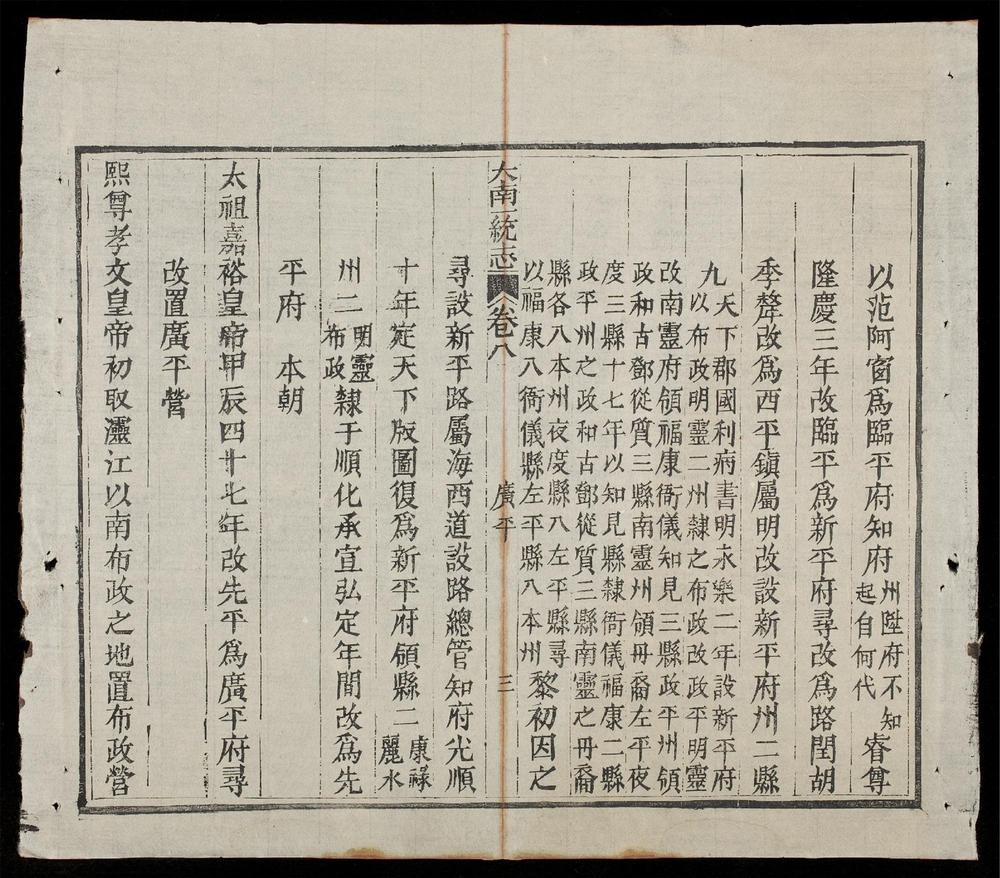 以范阿窗爲臨平府知府州陞府不知起自何代睿尊
隆慶三年改臨平爲新平府尋改爲路閏胡
季聲改爲西平鎮屬明改設新平府州二縣
九天下郡國利病書明永樂二年設新平府
以布政明靈二州隸之布政改政平明靈
改南靈府領福康衙儀知見三縣政平州領
政和古鄧從質三縣南靈州領丹裔左平夜
度三縣十七年以知見縣隸衙儀福康二縣
政平州之政和古鄧從質三縣南靈之丹裔
縣各入本州夜度縣入左平縣尋
以福康入衙儀縣左平縣入本州黎初因之
大南一統志 卷八 廣平 三
尋設新平路屬海西道設路總管知府光順
十年定天下版圖復爲新平府領縣二康祿麗水
州二明靈布政隸于順化承宣弘定年間改爲先
平府 本朝
太祖嘉裕皇帝甲辰四十七年改先平爲廣平府尋
改置廣平營
熙尊孝文皇帝初取江以南布政之地置布政營